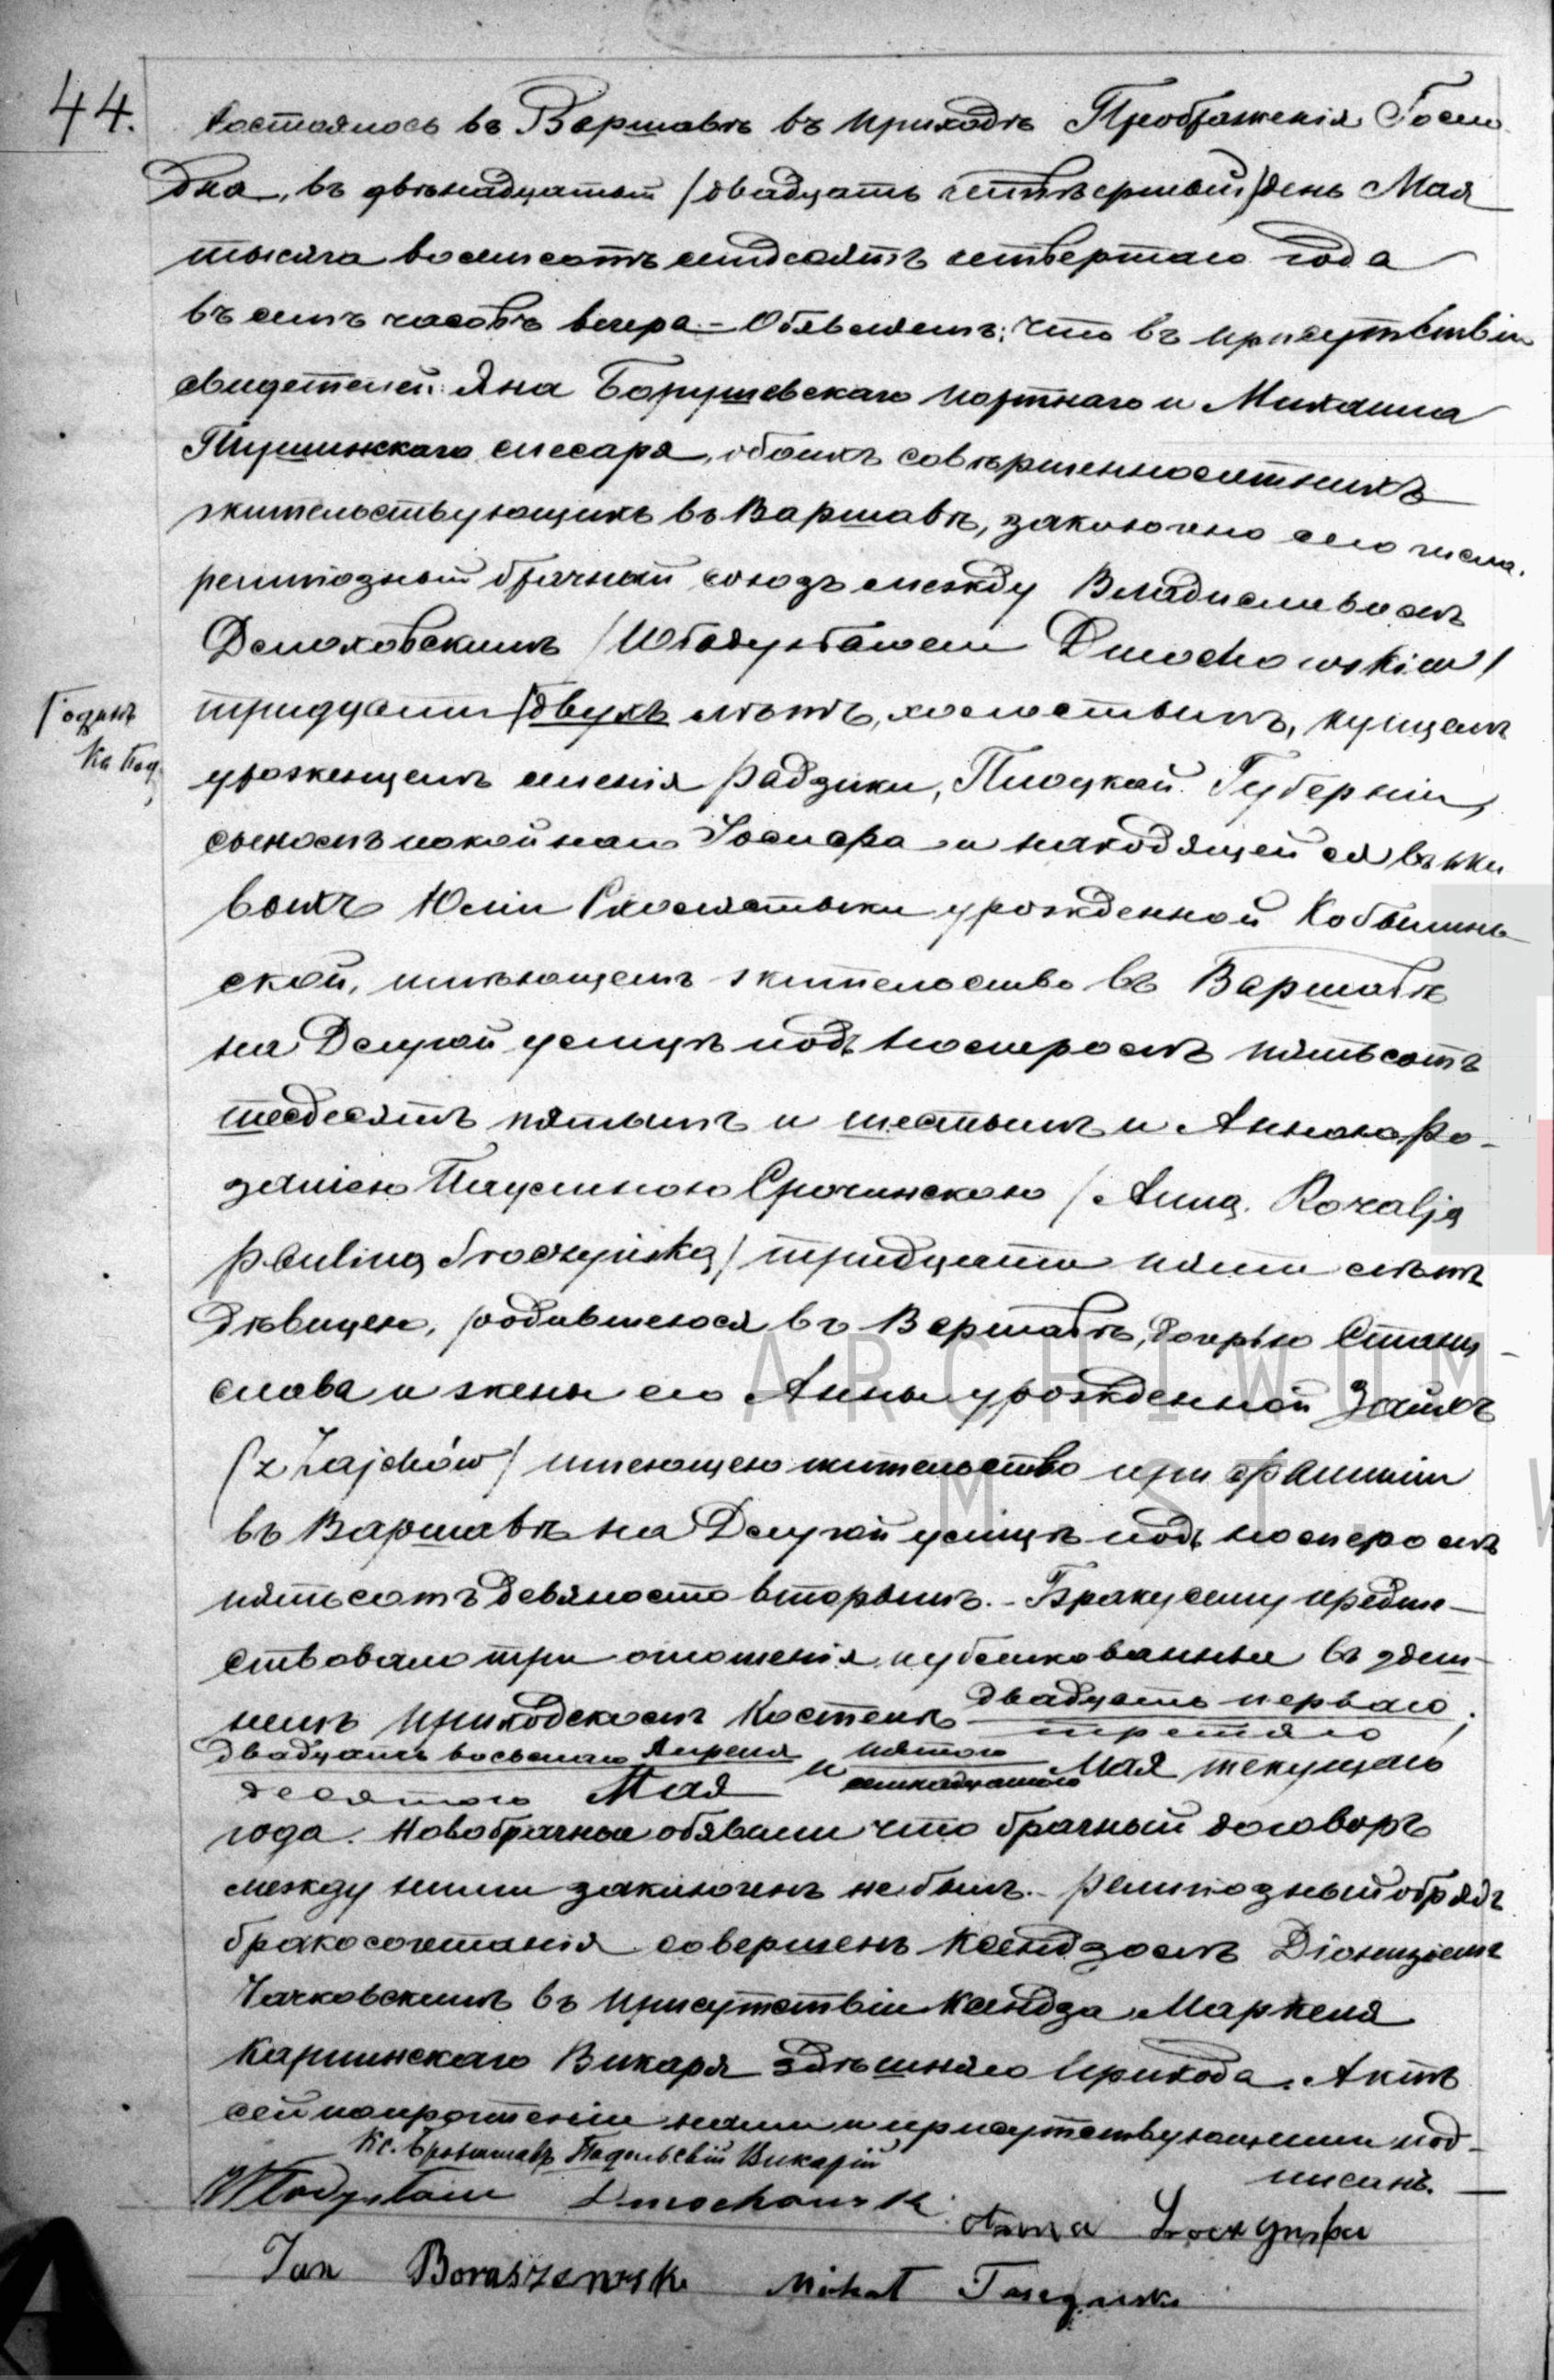 44.
Состоялось въ Варшавѣ въ приходѣ Преображенія Госпо
дня, въ двѣнадцатый /двадцать четвертый/ день Мая
тысяча восмсотъ семдесятъ четвертаго года
въ семь часовъ вечера. - Объявляемъ; что въ присутствіи
свидетелей: Яна Борушевскаго портнаго и Михаила
слесаря, обоихъ совѣршеннолѣтнихъ
жительствующихъ въ Варшавѣ, заключено сего числа
религіозный брачный союзъ между Владиславомъ
Дмоховскимъ /Władysławem Dmochowskim/
тридцати двухъ лѣтъ, холостымъ, купцемъ
уроженцемъ имѣнія Радзики, Плоцкой Губерніи,
сыномъ покойнаго и находящейся въ жи
выхъ Юліи урожденной Кобылинь
ской, имѣющемъ жительство въ Варшавѣ
на Долгой улицѣ подъ номеромъ пятьсотъ
шесдесятъ пятымъ и шестымъ и Анною Ро-
заліею Паулиною Срочинскою /Anną Rozalją
Pauliną Sroczyńską/ тридцати пяти лѣтъ
дѣвицею, родившеюся въ Варшавѣ, дочерью Стани-
слава и жены его Анны урожденной Зайхъ
/z Zajchów/ имеющею жительство при фамиліи
въ Варшавѣ на Долгой улицѣ подъ номеромъ
пятьсотъ девяносто вторымъ. - Браку сему предше-
ствовало три оглошенія публикованныя въ здеш-
немъ приходскомъ Костелѣ двадцать перваго
третяго
двадцать восьмаго Апреля и пятого Мая текущаго
десятого Мая семнадцатого
года. Новобрачныя объявили что брачный договоръ
между ними заключенъ не былъ. - Религіозный обрядъ
бракосочетанія совершенъ Ксендзомъ Діонизіемъ
Чачковскимъ въ присутствіи Ксендза Маркела
Карпинскаго Викарія здѣшняго прихода. Актъ
сей по прочтеніи нами и присутствующими под-
писанъ.
Кс. Викарій
Władysław Dmochowski Anna Sroczyńska
Jan Boruszewski Michał
ARCHIWUM
M. ST. W